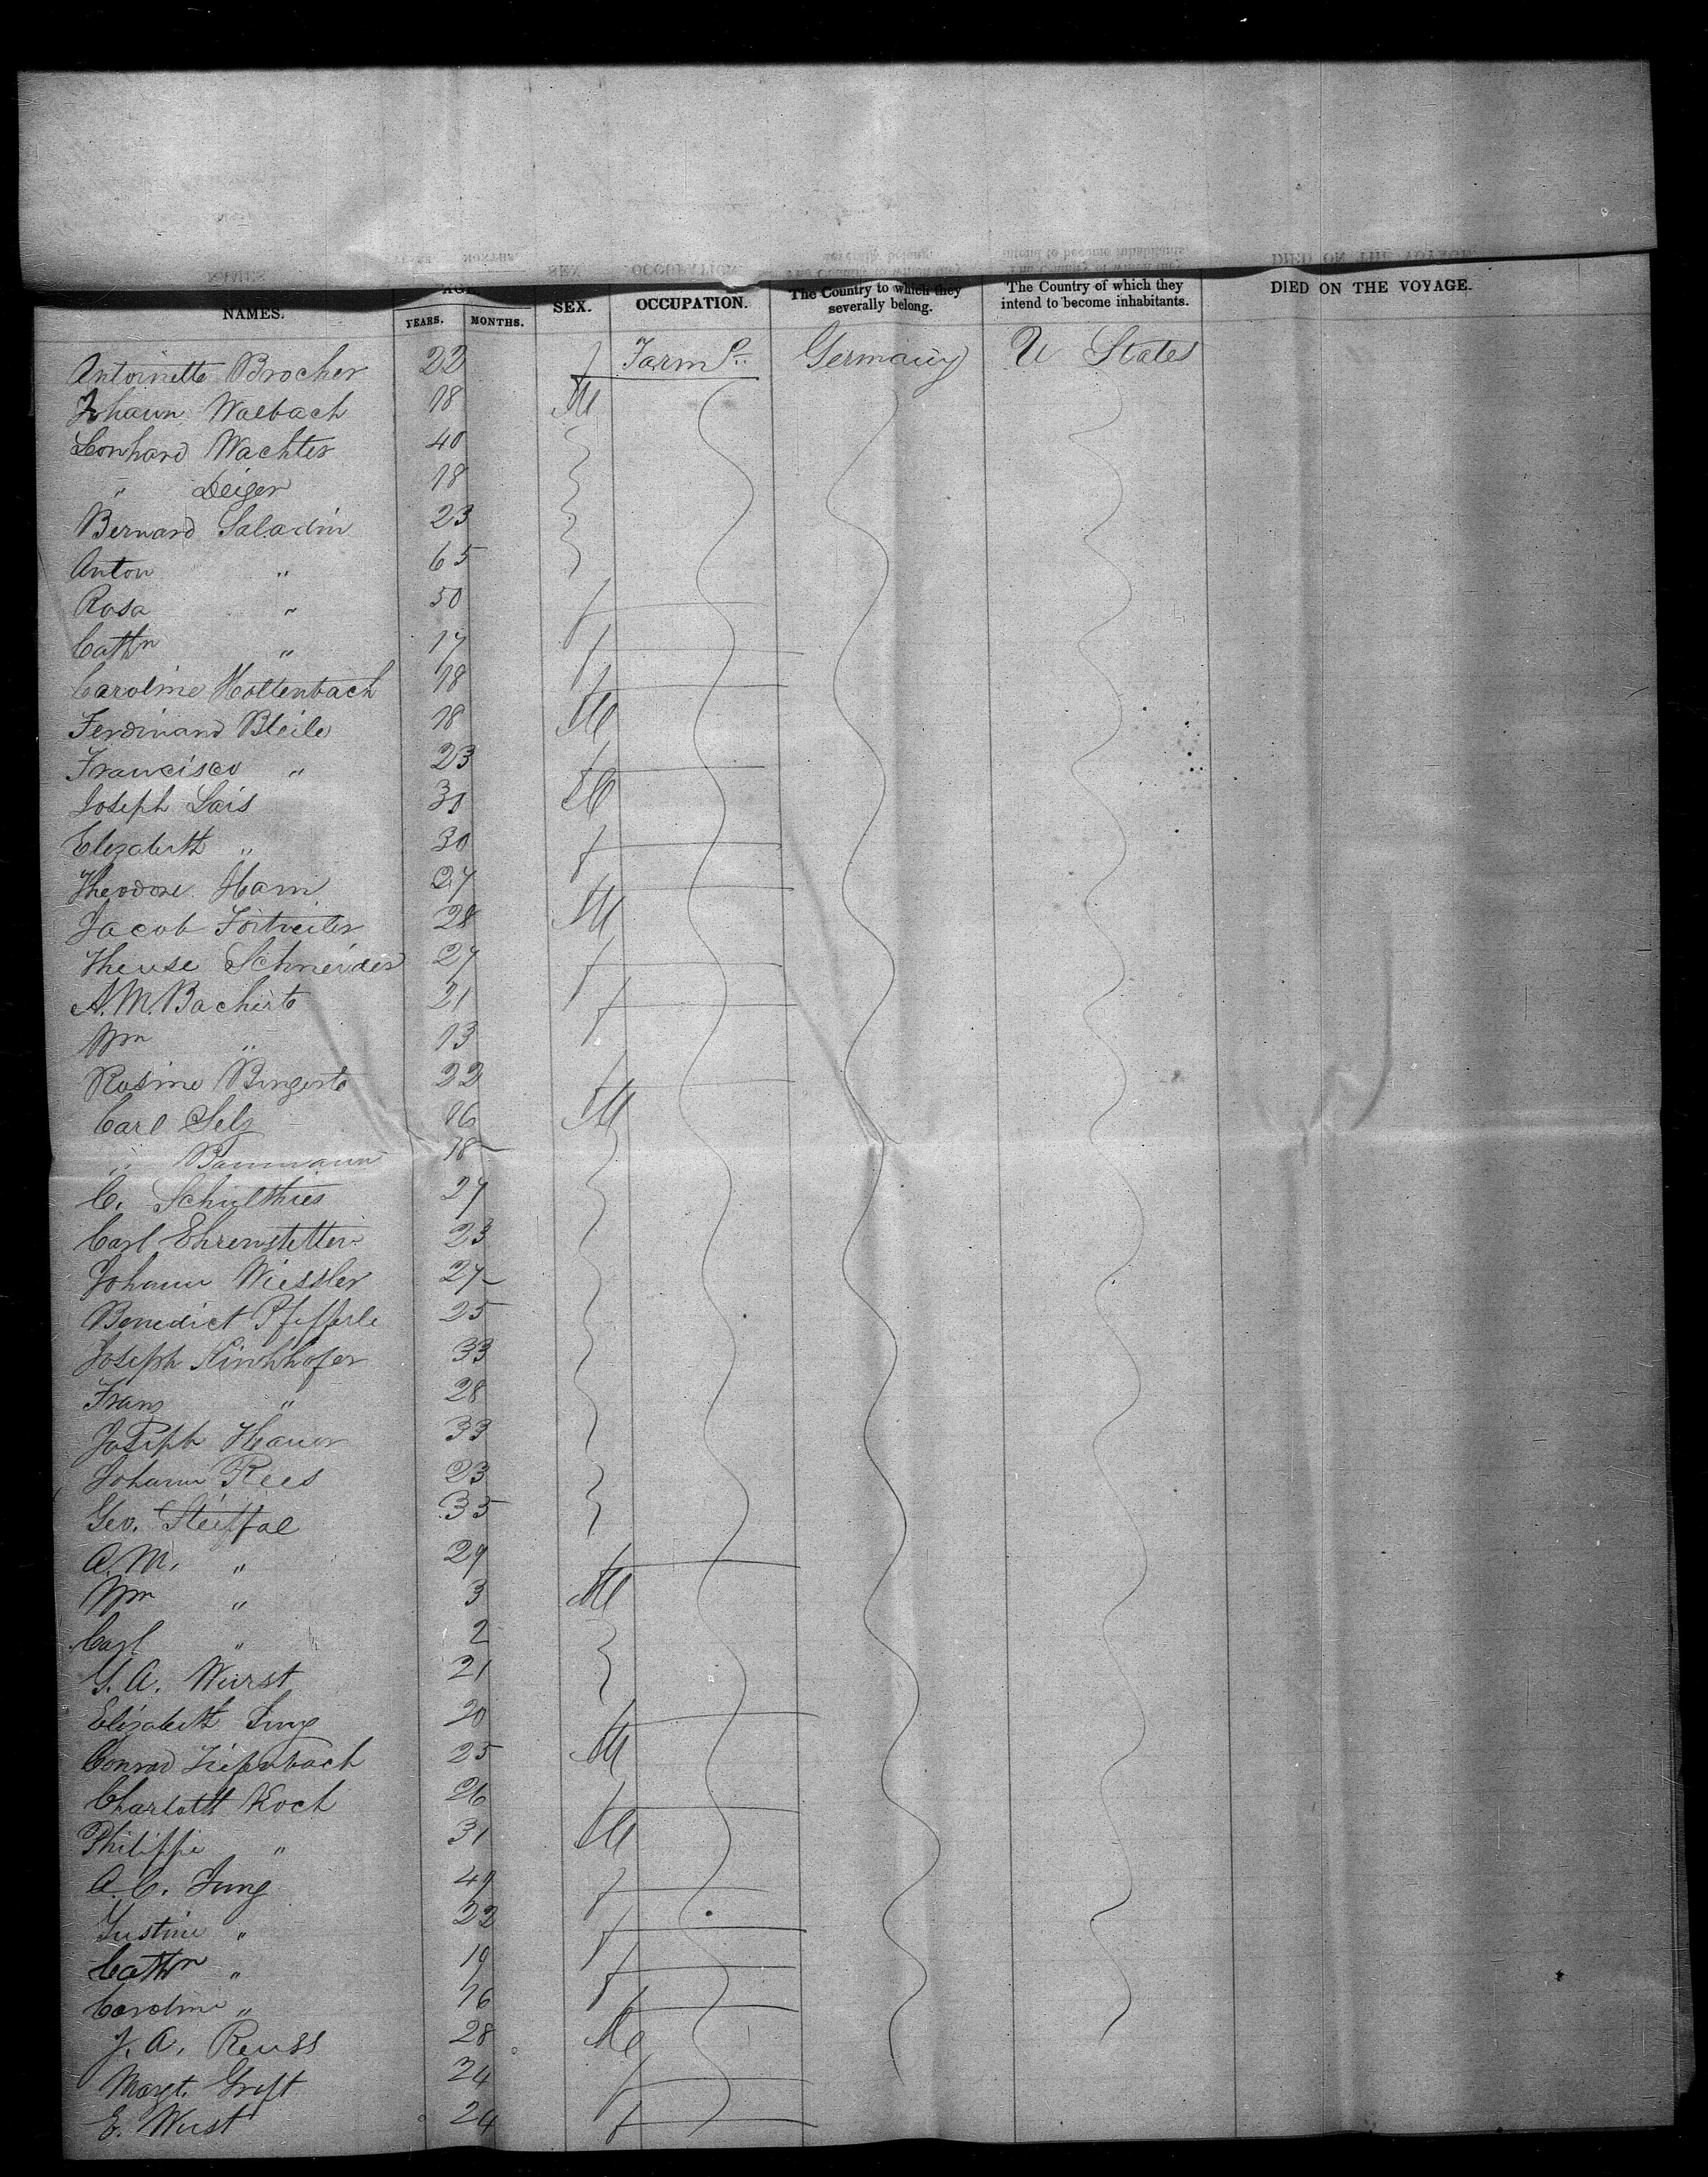 NAMES. AGE. SEX. OCCUPATION. The Country to which they severally belong. The Country of which they intend to become inhabitants. DIED ON THE VOYAGE.
YEARS. MONTHS.
Antoinette Brocher 22 f Farm Germany U States
Johann Walbach 18 M
Leonhard Wachter 40
" Deiger 18
Bernard Saladin 23
Anton " 65
Rosa " 50 f
Cathn " 17 f
Caroline Holtenbach 18 f
Ferdinand Bleile 18 M
Francisco " 23 f
Joseph Lais 31 M
Elizabeth " 30 f
Theodore Ham 27
Jacob Fortweiler 28 M
Therese Schneider 27 f
A. M. Bacherts 21 f
Wm " 13
Rosine Bingert 22 f
Carl Selz 16 M
" Baumann 18
C. Schulthies 27
Carl Ehrenstetter 23
Johann Wiessler 27
Benedict Pfefferle 25
Joseph Kirchhofer 33
Franz " 28
Joseph Hauer 33
Johann Rees 23
Geo. Steiffal 35
A. M. " 29 f
Wm " 3 M
Carl " 2
G. A. Wurst 21
Elizabeth Jung 20 f
Conrad Tiefenbach 25 M
Charlott Koch 26 f
Philippe " 31 M
A. C. Jung 49 f
Justine " 22 f
Cathn " 19 f
Caroline " 16 f
J. A. Reuss 28 M
Margt. Greft 24 f
E. Wust 24 f